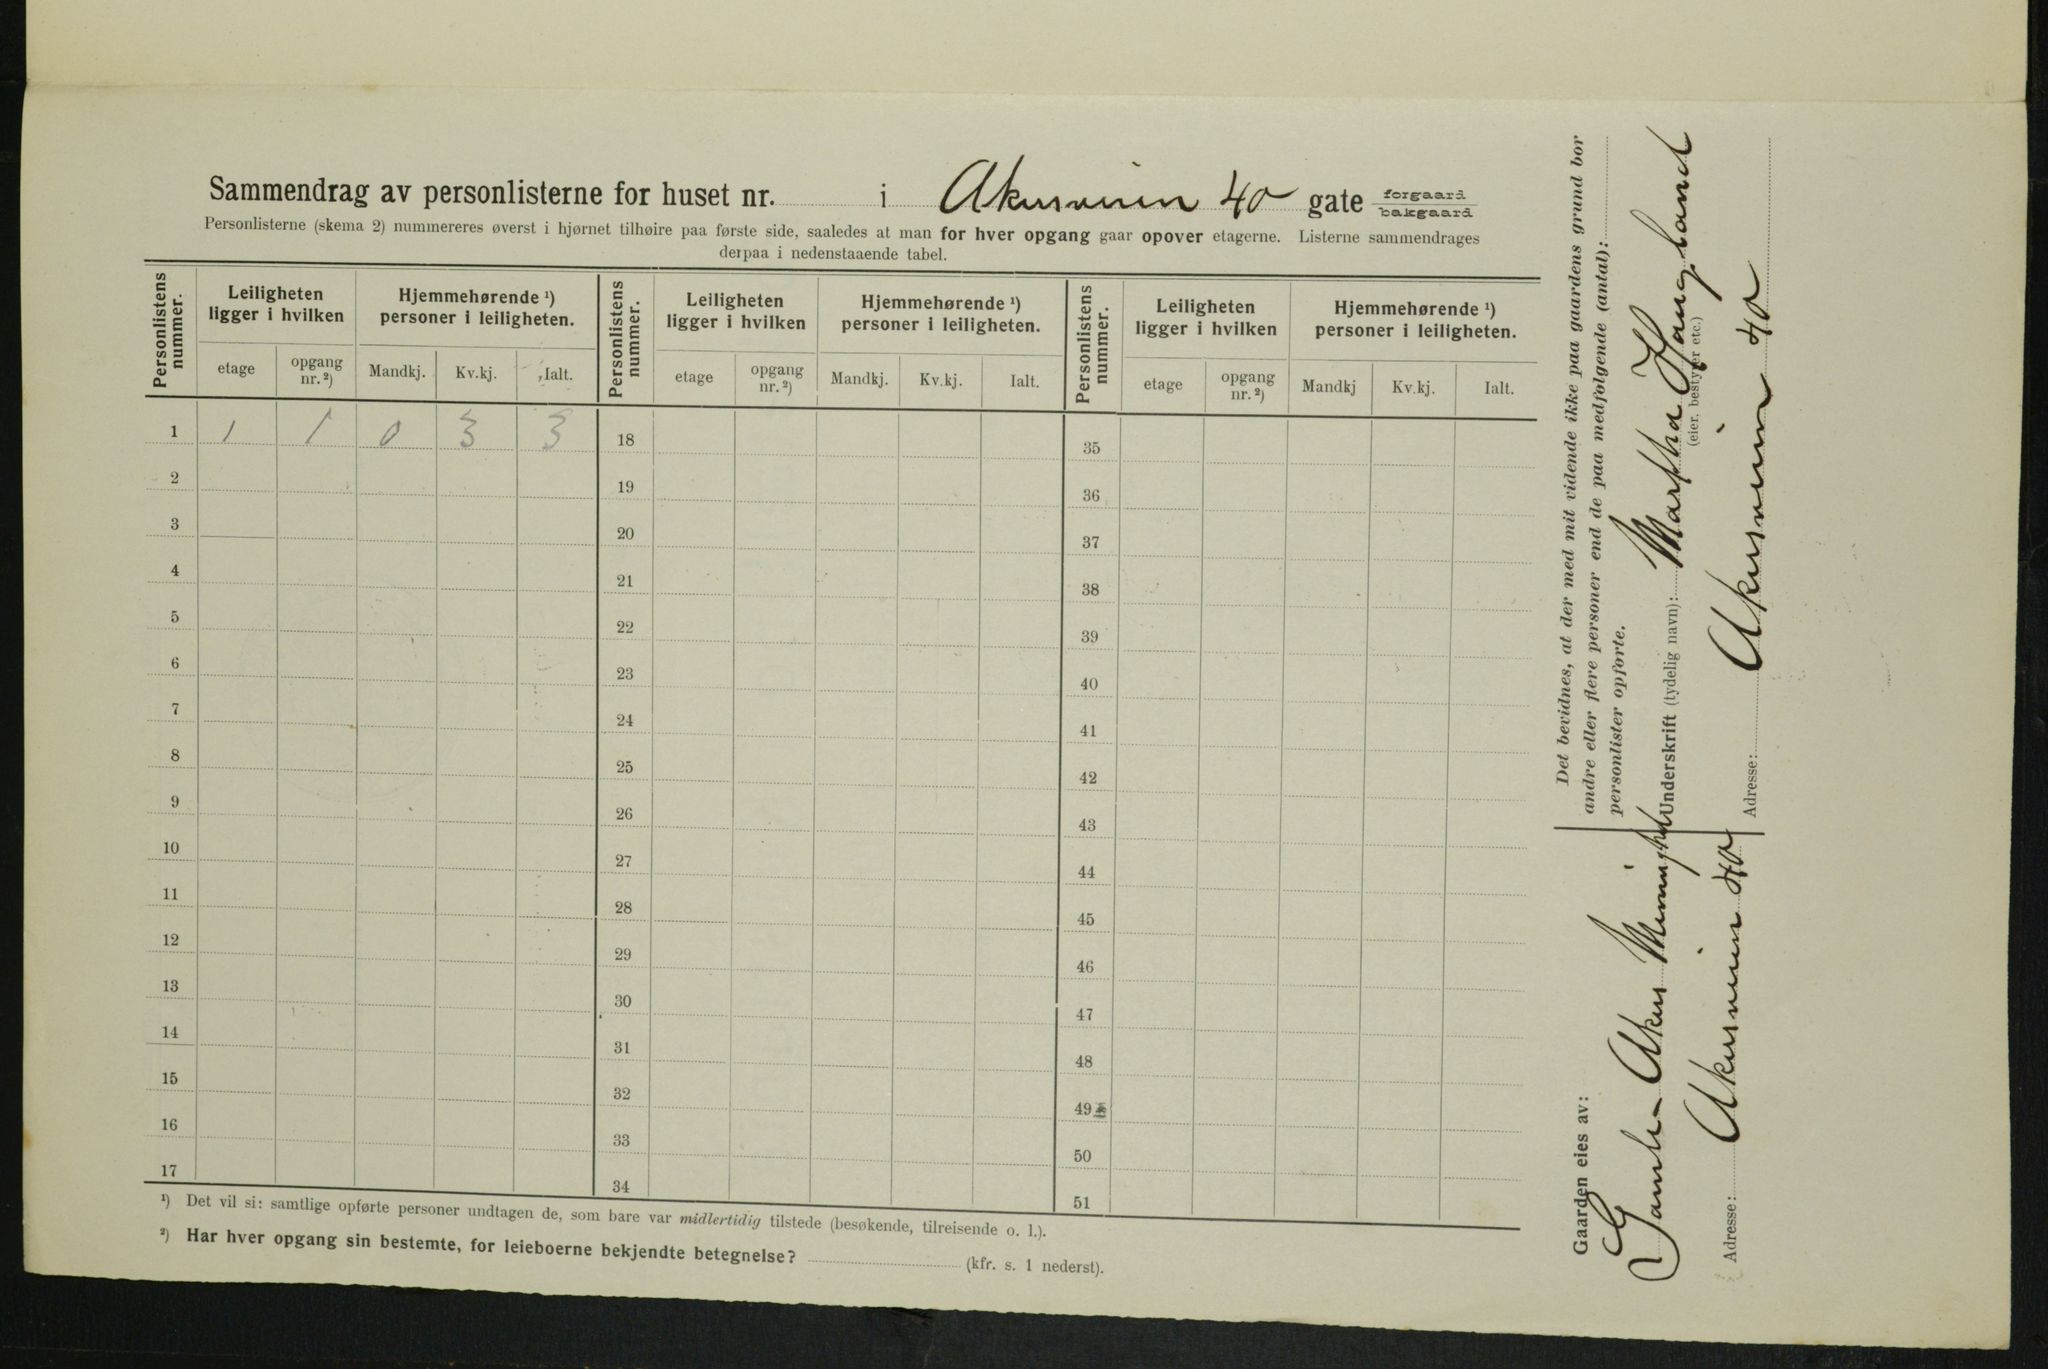 Sammendrag av personlisterne for huset nr. i Akersveien 40 gate forgaard bakgaard
Personlisterne (skema 2) nummereres øverst i hjørnet tilhøire paa første side, saaledes at man for hver opgang gaar opover etagerne. Listerne sammendrages
derpaa i nedenstaaende tabel.
Personlistens nummer. Leiligheten ligger i hvilken Hjemmehørende ¹) personer i leiligheten. Personlistens nummer. Leiligheten ligger i hvilken Hjemmehørende ¹) personer i leiligheten. Personlistens nummer. Leiligheten ligger i hvilken Hjemmehørende ¹) personer i leiligheten.
etage opgang nr. ²) Mandkj. Kv.kj. Ialt. etage opgang nr. ²) Mandkj. Kv.kj. Ialt. etage opgang nr. ²) Mandkj Kv.kj. Ialt.
1 1 1 0 3 3 18 35
2 19 36
3 20 37
4 21 38
5 22 39
6 23 40
7 24 41
8 25 42
9 26 43
10 27 44
11 28 45
12 29 46
13 30 47
14 31 48
15 32 49
16 33 50
17 34 51
¹) Det vil si: samtlige opførte personer undtagen de, som bare var midlertidig tilstede (besøkende, tilreisende o. l.).
²) Har hver opgang sin bestemte, for leieboerne bekjendte betegnelse? (kfr. s. 1 nederst).
Gaarden eies av:
Gamle Akers Menighet
Adresse: Akersveien 40
Det bevidnes, at der med mit vidende ikke paa gaardens grund bor
andre eller flere personer end de paa medfølgende (antal):
personlister opførte.
Underskrift (tydelig navn): Martha Haugland
(eier, bestyrer etc.)
Adresse: Akersveien 40